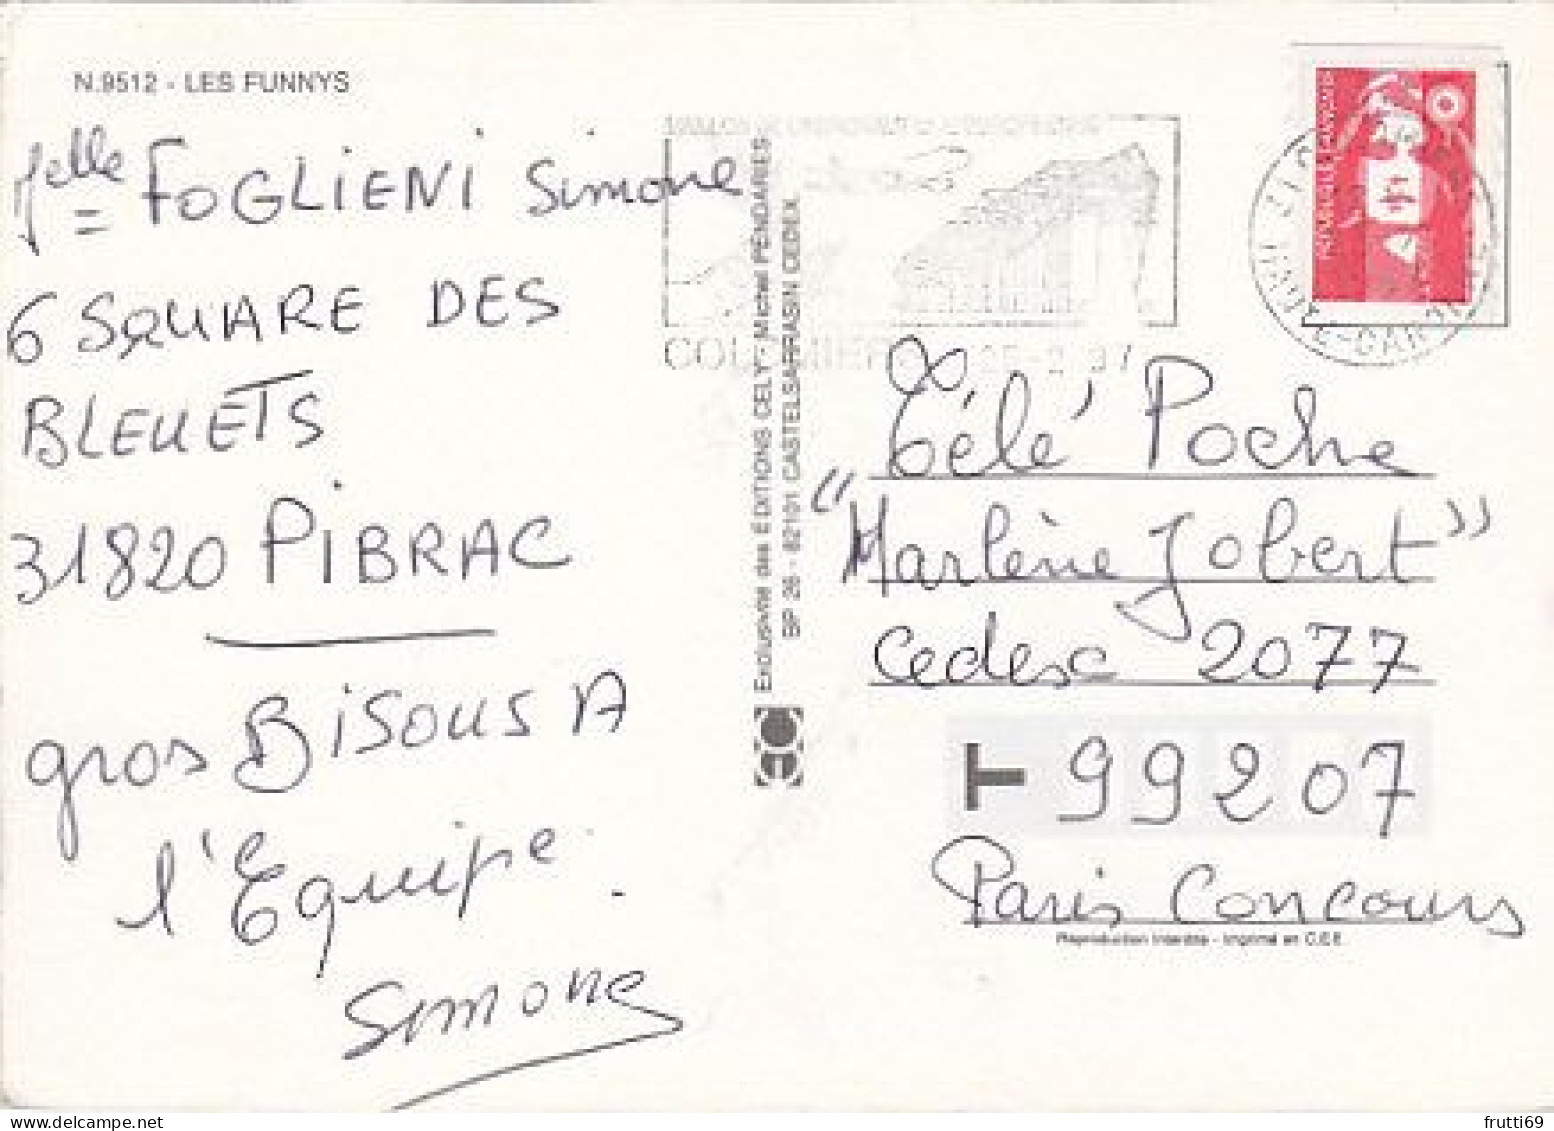 N.9512 - LES FUNNYS
Melle FOGLIENI Simone
6 SQUARE DES
BLEUETS
31820 PIBRAC
gros BISOUS A
l'Equipe.
Simone
Exclusivité des EDITIONS CELY - Michel PENDARIES
BP 26 - 82101 CASTELSARRASIN CEDEX
COLOMIERS 25-2-97
REPUBLIQUE FRANÇAISE
HAUTE-GARONNE
Télé Poche
"Marlène Jobert"
Cedex 2077
T 99207
Paris Concours
Reproduction Interdite - Imprimé en C.E.E.
frutti69